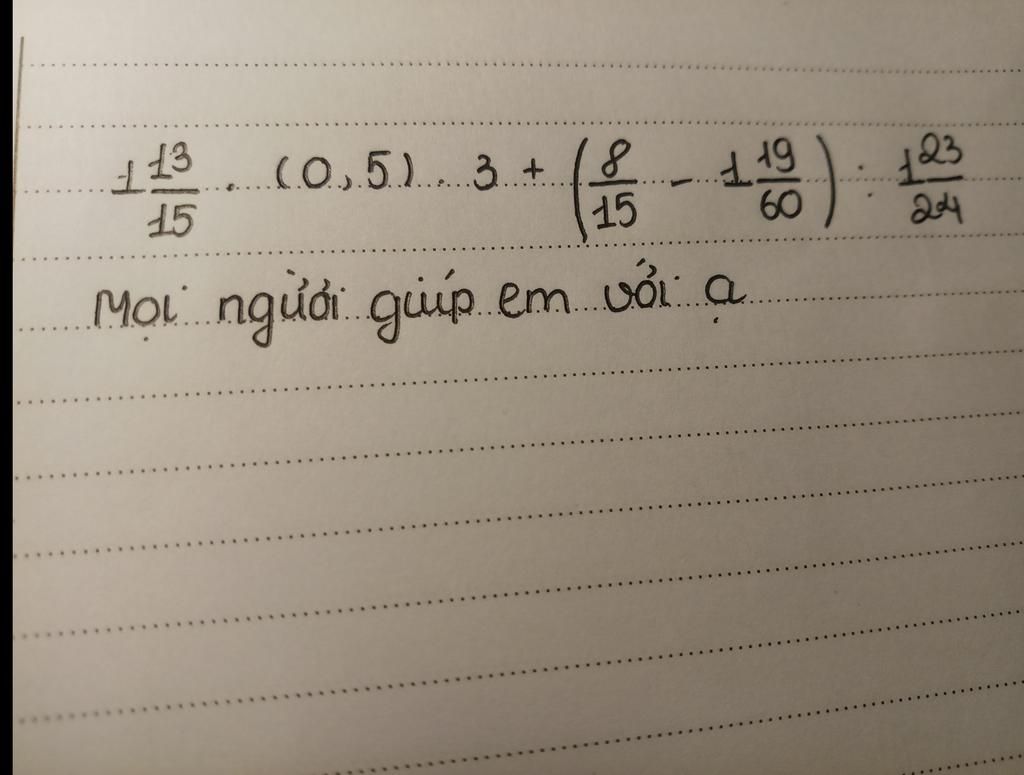 1 13/15 . (0,5) . 3 + (8/15 - 1 19/60) : 1 23/24
Mọi người giúp em với ạ